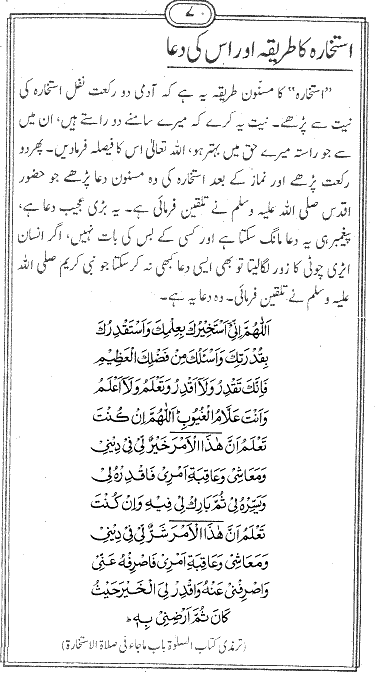 ۷۰
استخارہ کا طریقہ اور اس کی دعا
”استخارہ“ کا مسنون طریقہ یہ ہے کہ آدمی دو رکعت نفل استخارہ کی
نیت سے پڑھے۔ نیت یہ کرے کہ میرے سامنے دو راستے ہیں، ان میں
سے جو راستہ میرے حق میں بہتر ہو، اللہ تعالیٰ اس کا فیصلہ فرما دیں۔ پھر دو
رکعت پڑھے اور نماز کے بعد استخارہ کی وہ مسنون دعا پڑھے جو حضور
اقدس صلی اللہ علیہ وسلم نے تلقین فرمائی ہے۔ یہ بڑی عجیب دعا ہے،
پیغمبر ہی یہ دعا مانگ سکتا ہے اور کسی کے بس کی بات نہیں، اگر انسان
ایڑی چوٹی کا زور لگا لیتا تو بھی ایسی دعا کبھی نہ کر سکتا جو نبی کریم صلی اللہ
علیہ وسلم نے تلقین فرمائی۔ وہ دعا یہ ہے۔
اَللّٰهُمَّ اِنِّیْ اَسْتَخِیْرُكَ بِعِلْمِكَ وَاَسْتَقْدِرُكَ
بِقُدْرَتِكَ وَاَسْئَلُكَ مِنْ فَضْلِكَ الْعَظِیْمِ
فَاِنَّكَ تَقْدِرُ وَلَا اَقْدِرُ وَتَعْلَمُ وَلَا اَعْلَمُ
وَاَنْتَ عَلَّامُ الْغُیُوْبِ اَللّٰهُمَّ اِنْ كُنْتَ
تَعْلَمُ اَنَّ هٰذَا الْاَمْرَ خَیْرٌ لِّیْ فِیْ دِیْنِیْ
وَمَعَاشِیْ وَعَاقِبَةِ اَمْرِیْ فَاقْدِرْهُ لِیْ
وَیَسِّرْهُ لِیْ ثُمَّ بَارِكْ لِیْ فِیْهِ وَاِنْ كُنْتَ
تَعْلَمُ اَنَّ هٰذَا الْاَمْرَ شَرٌّ لِّیْ فِیْ دِیْنِیْ
وَمَعَاشِیْ وَعَاقِبَةِ اَمْرِیْ فَاصْرِفْهُ عَنِّیْ
وَاصْرِفْنِیْ عَنْهُ وَاقْدِرْ لِیَ الْخَیْرَ حَیْثُ
كَانَ ثُمَّ اَرْضِنِیْ بِهٖ۔
(ترمذی کتاب الصلوٰۃ باب ماجاء فی صلاۃ الاستخارۃ)